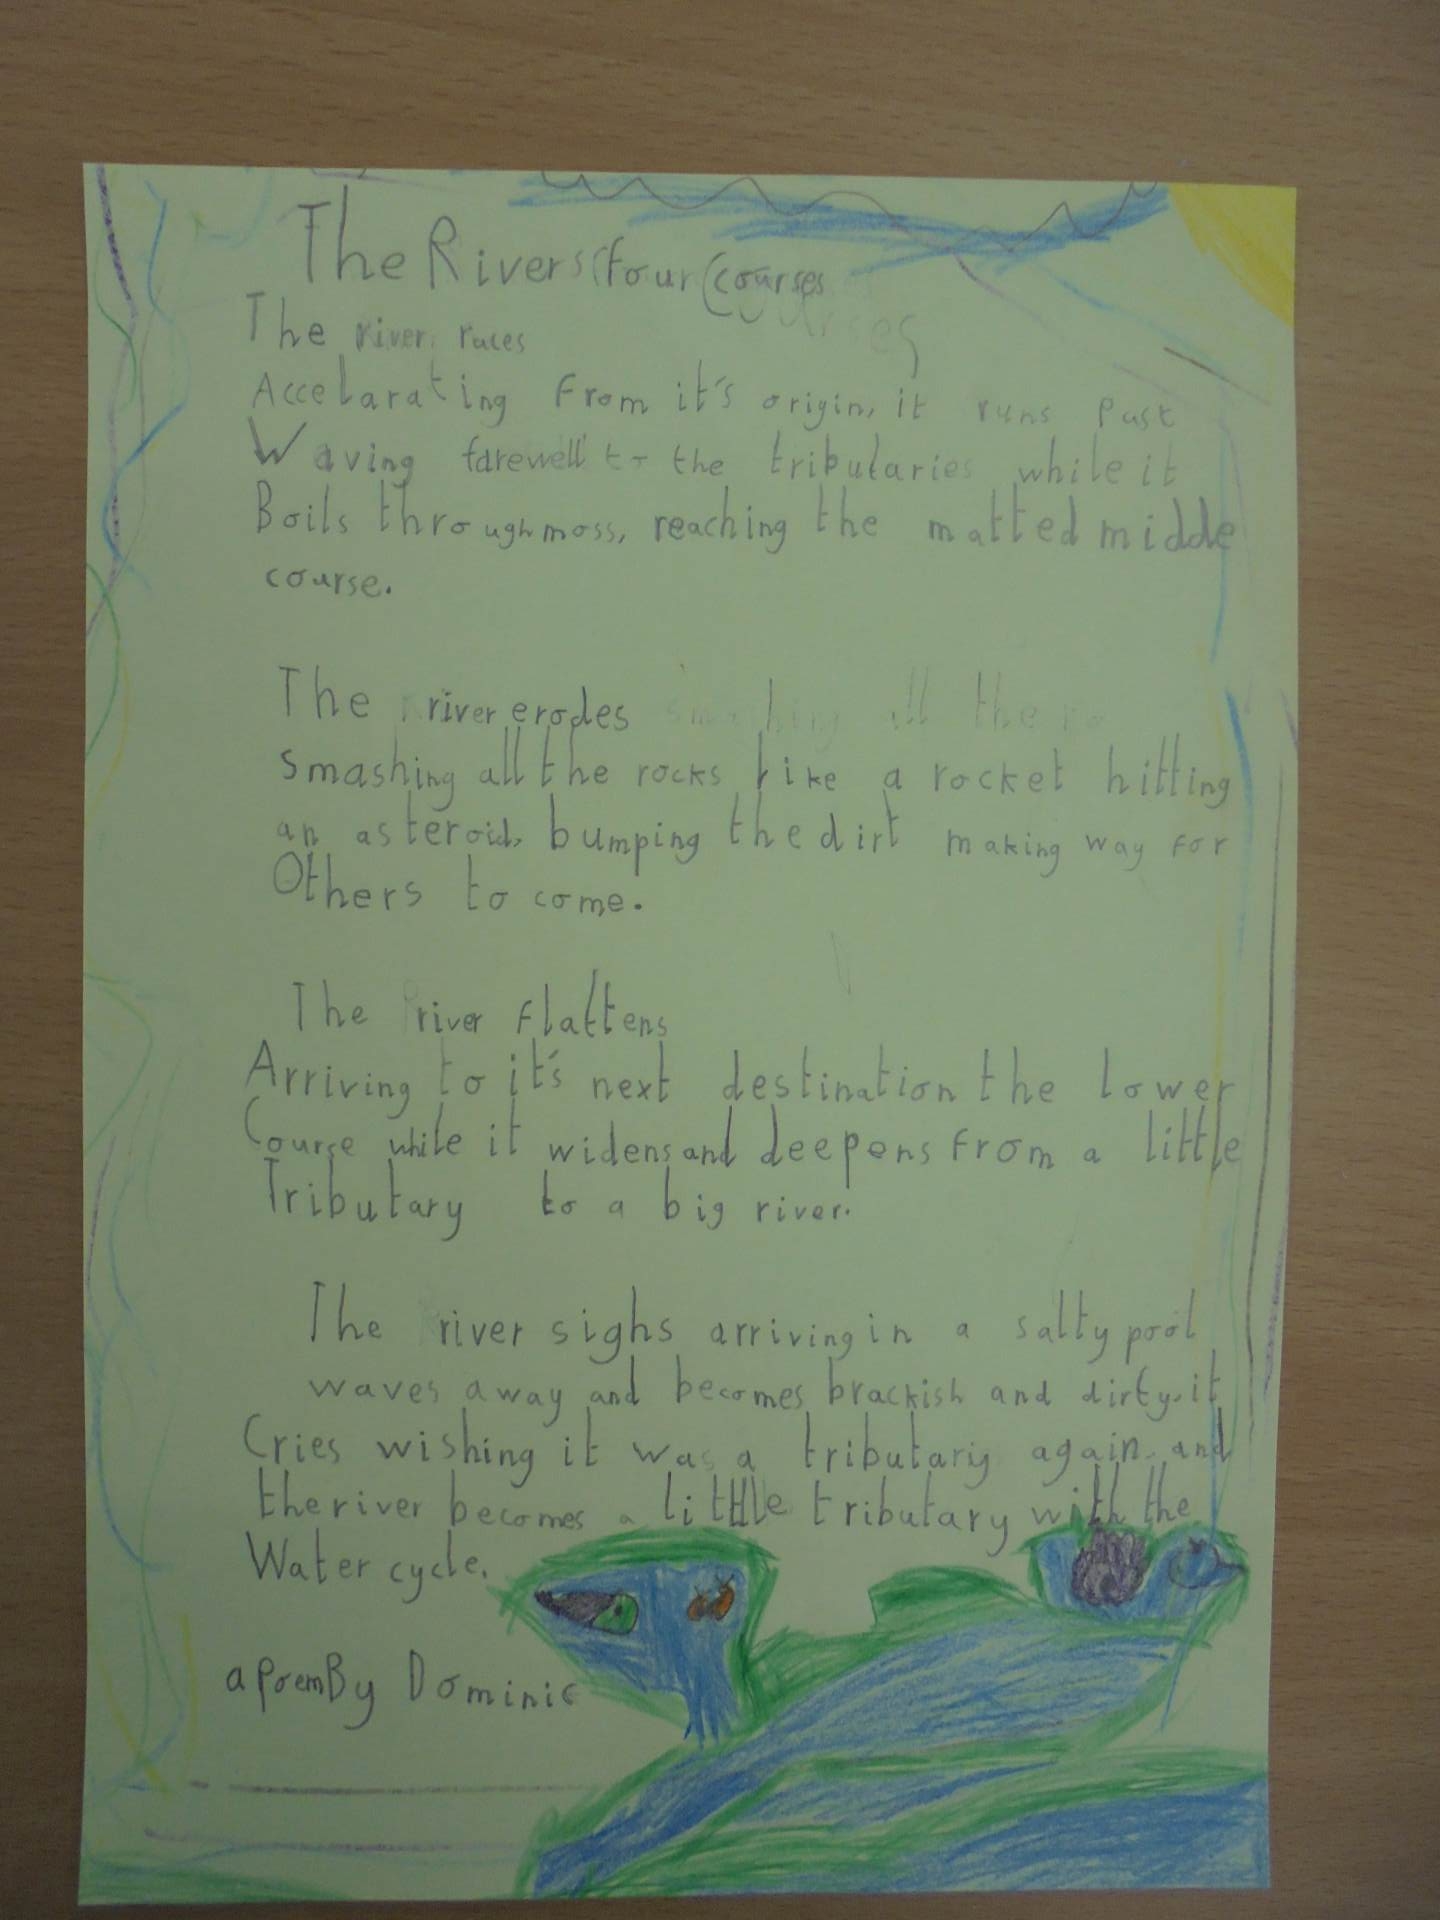 The Rivers four courses
The river races
Accelarating from it's origin, it runs past
Waving farewell to the tributaries while it
Boils through moss, reaching the matted midde
course.
The river erodes
smashing all the rocks like a rocket hitting
an asteroid, bumping the dirt making way for
Others to come.
The river flattens
Arriving to it's next destination the lower
Course while it widens and deepens from a little
Tributary to a big river.
The river sighs arriving in a salty pool
waves away and becomes brackish and dirty, it
Cries wishing it was a tributariy again and
the river becomes a little tributary with the
Water cycle.
a Poem By Dominic